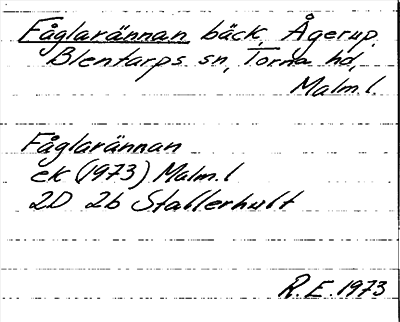 Fåglarännan bäck, Ågerup,
Blentarps sn, Torna hd,
Malm.l.
Fåglarännan
ek (1973) Malm.l
2D 2b Stallerhult
R.E. 1973